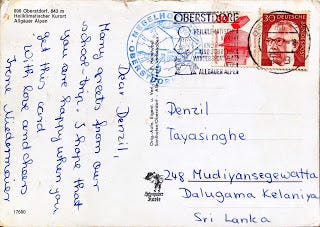 890 Oberstdorf, 843 m
Heilklimatischer Kurort
Allgäuer Alpen
Dear Denzil,
Many greets from our
school-trip. I hope that
you are happy when you
get this card
With love and cheers
Irene Niedermaier
17680
OBERSTDORF
HEILKLIMATISCHER
ALLGÄUER ALPEN
NEBELHORN
OBERSTDORF
30
DEUTSCHE BUNDESPOST
Denzil
Tayasinghe
248 Mudiyansegewatta
Dalugama Kelaniya
Sri Lanka